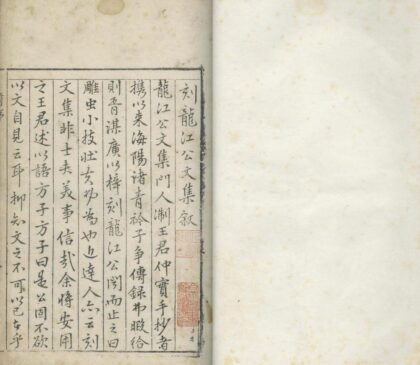 刻龍江公文集叙
龍江公文集門人淛王君仲實手抄者
攜以來海陽諸青衿子爭傳録弗暇給
則晋湛廣以梓刻龍江公聞而止之曰
雕虫小技壯夫弗為也近達人亦云刻
文集非士夫義事信哉余將安用
之王君述以語方子方子曰是公固不欲
以文自見云耳抑知文之不可以已者乎